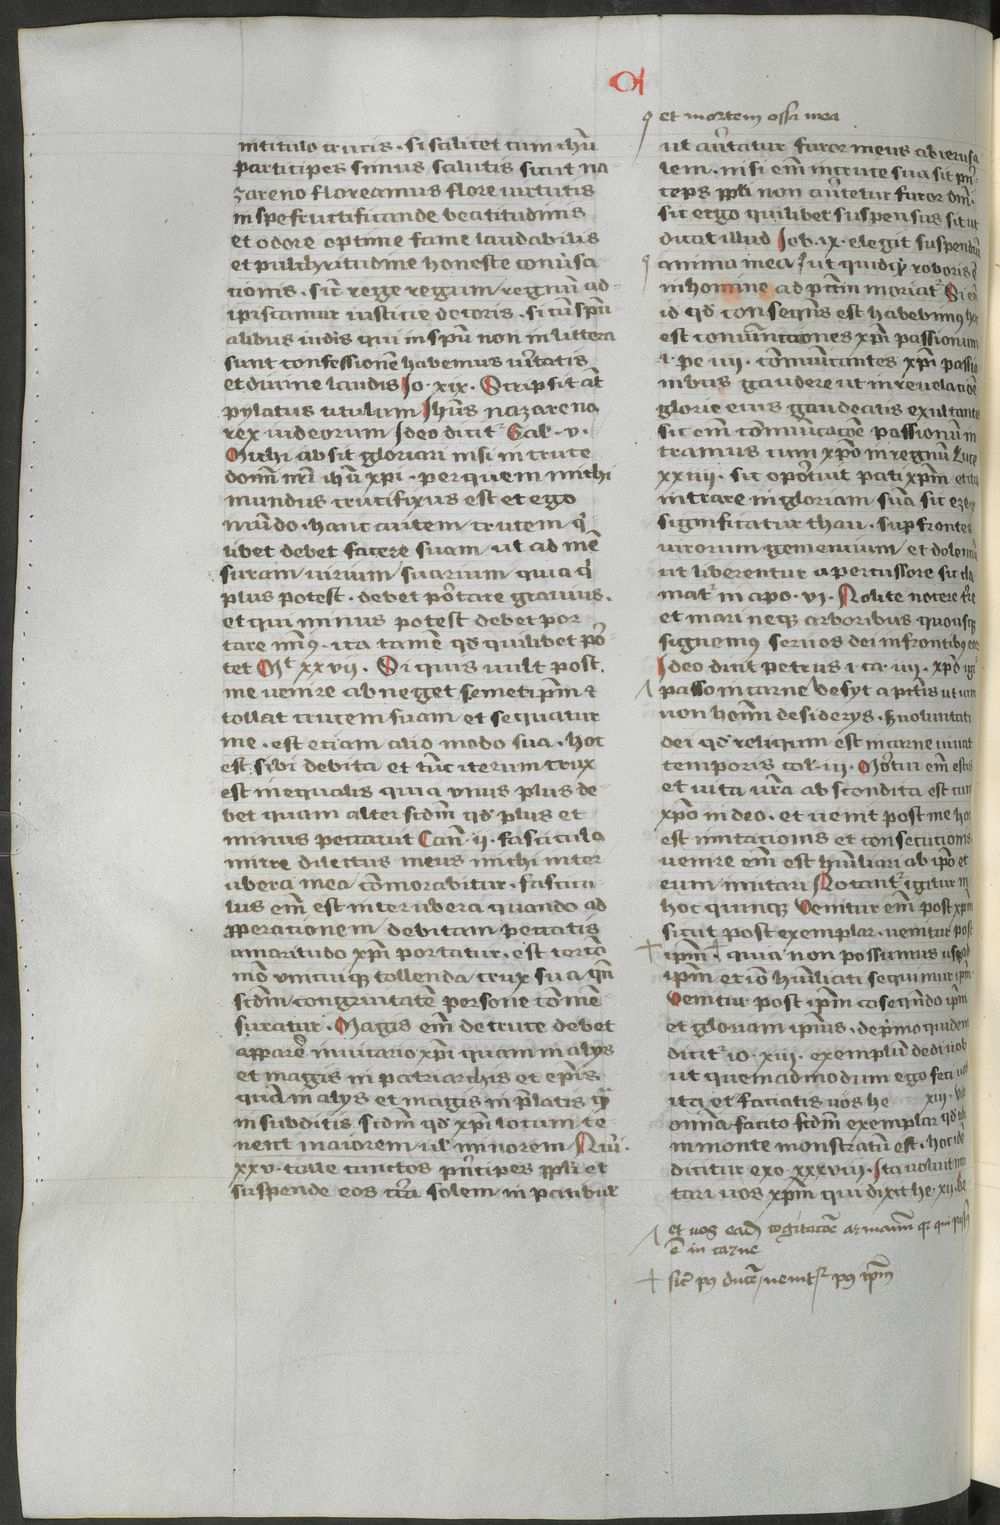 et mortem ossa mea
in titulo crucis · si scilicet cum ihū
participes simus salutis sicut na
zareno floreamus flore uirtutis
in spe fructificande beatitudinis
et odore optime fame laudabilis
et pulchritudine honeste conūsa
tionis · sic̄ rege regum regnū ad=
ipiscamur iusticie decoris · si cū spū
alibus iudeis qui in spū non in littera
sunt confessionē habemus uītatis
et diuine laudis Jo · xix · Scripsit aūt
pylatus titulum Jhūs nazareno
rex iudeorum Jdeo dicit Gal · v ·
Michi absit gloriari nisi in cruce
domī nrī ihū xpi · per quem michi
mundus crucifixus est et ego
mūdo · hanc autem crucem q̄
libet debet facere suam ut ad mē
suram uirium suarum quia q̄
plus potest · debet portare grauius ·
et qui minus potest debet por
tare min9 · ita tamē qd quilibet por
tet Mt xxvii · Si quis uult post
me uenire abneget semetipm̄ et
tollat crucem suam et sequatur
me · est etiam alio modo sua · hoc
est sibi debita et tūc iterum crux
est inequalis quia vnus plus de
bet quam alter scdm̄ qd plus et
minus peccauit Can̄ · ii · fascicula
mirre dilectus meus michi inter
ubera mea cōmorabitur · fascicu
lus em̄ est inter ubera quando ad
operationem debitam peccatis
amaritudo xpi portatur · est tertō
mō vnicuiq; tollenda crux sua qn̄
scdm̄ congruitatē persone cōmē
suratur · Magis em̄ de cruce debet
apparere in uicario xpi quam in alys
et magis in patriarchis et epis
quā in alys et magis in p̄latis q̄
in subditis scdm̄ qd xpi locum te
nent maiorem uel minorem Nūi ·
xxv · tolle cunctos pn̄cipes ppli et
suspende eos cōtra solem in patibul
ut auertatur furor meus ab ierusa
lem · nisi em̄ in cruce sua sit prin
ceps ppli non auertetur furor dnī ·
sic ergo quilibet suspensus sit ut
dicat illud Job · ix · elegit suspendiū
anima mea ut quidq̄ roboris ē
in homine ad pctm̄ moriatr Si em̄
id qd consequēs est habebimus hoc
est cōmunicationes xpi passionum
i · pe iiii · cōmunicantes xpi passio
nibus gaudete ut in reuelatiōe
glorie eius gaudeatis exultantes
sic em̄ cōmunicatōe passionum in
tramus cum xpo in regnū Luce
xxiiii · sic oportuit pati xpm̄ et ita
intrare in gloriam suā sic eze
significatur thau · super frontes
uirorum gementium et dolentiū
ut liberentur a percussore sic cla
mat in apo · vi · Nolite nocere tre
et mari neq; arboribus quousq;
signemus seruos dei in frontibus eor
Jdeo dicit petrus i ca · iiii · xpo igr̄
passo in carne
non homī desiderys · s; uoluntati
dei qd reliquum est in carne uiuat
temporis col · iii · Mortui em̄ estis
et uita ur̄a abscondita est cum
xpo in deo · et uenit post me hoc
est imitationis et consecutionis
uenire em̄ est humiliari ab ipo et
eum imitari Notant igitur in
hoc quinq; Venitur em̄ post xpm̄
sicut post exemplar · uenitur post
ipm̄ quia non possumus usq; ad
ipm̄ et iō humiliati sequimur ipm̄
Venitur post ipm̄ cōsequendo ipm̄
et gloriam ipius · de primo quidem
dicit io · xiii · exemplum dedi uob
ut quemadmodum ego feci uob
ita et faciatis uos he xiii ·
omia facito scdm̄ exemplar qd tibi
in monte monstratū est · hoc idē
dicitur exo xxxviii · Ita uoluit imi
tari uos xpm̄ qui dixit he · xii · De
et uos eadē cogitacōe armamī qr qui passus
ē in carne
sic̄ p9 ducē uenitr p9 ipm̄